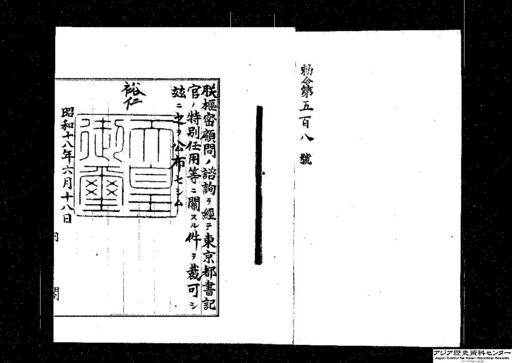 勅令第五百八號
朕樞密顧問ノ諮詢ヲ經テ東京都書記
官ノ特別任用等ニ關スル件ヲ裁可シ
玆ニ之ヲ公布セシム
裕仁
天皇御璽
昭和十八年六月十八日
内閣
アジア歴史資料センター
Japan Center for Asian Historical Records